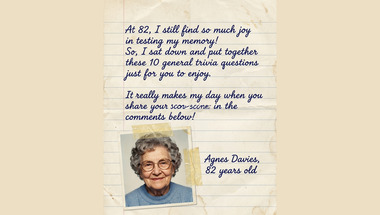 At 82, I still find so much joy
in testing my memory!
So, I sat down and put together
these 10 general trivia questions
just for you to enjoy.
It really makes my day when you
share your in the
comments below!
Agnes Davies,
82 years old